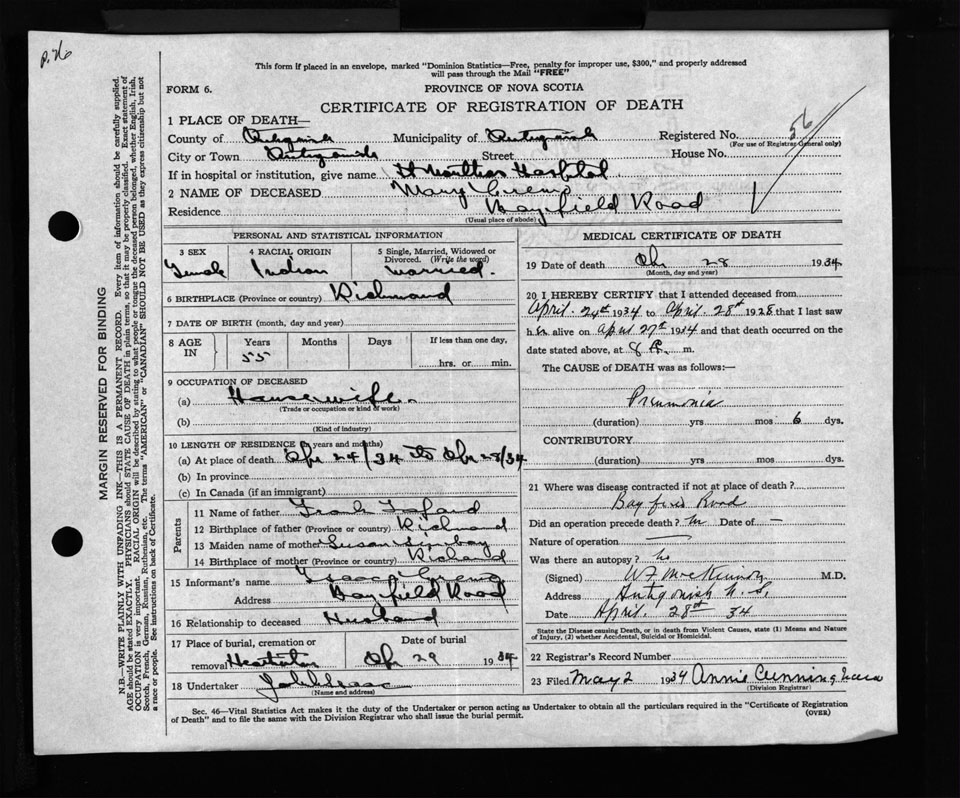 p. 76
This form if placed in an envelope, marked "Dominion Statistics—Free, penalty for improper use, $300," and properly addressed
will pass through the Mail "FREE"
FORM 6.
PROVINCE OF NOVA SCOTIA
CERTIFICATE OF REGISTRATION OF DEATH
1 PLACE OF DEATH—
County of Antigonish Municipality of Antigonish Registered No. 56
(For use of Registrar General only)
City or Town Antigonish Street House No.
If in hospital or institution, give name St Marthas Hospital
2 NAME OF DECEASED Mary
Residence Bayfield Road
(Usual place of abode)
PERSONAL AND STATISTICAL INFORMATION
3 SEX 4 RACIAL ORIGIN 5 Single, Married, Widowed or Divorced. (Write the word)
Female Indian married.
6 BIRTHPLACE (Province or country) Richmond
7 DATE OF BIRTH (month, day and year)
8 AGE IN Years Months Days If less than one day,
55 hrs. or min.
9 OCCUPATION OF DECEASED
(a) Housewife.
(Trade or occupation or kind of work)
(b)
(Kind of industry)
10 LENGTH OF RESIDENCE (in years and months)
(a) At place of death Apr 24/34 to Apr 28/34
(b) In province
(c) In Canada (if an immigrant)
Parents
11 Name of father Frank
12 Birthplace of father (Province or country) Richmond
13 Maiden name of mother Susan
14 Birthplace of mother (Province or country) Richmond
15 Informant's name Isaac
Address Bayfield Road
16 Relationship to deceased Husband
17 Place of burial, cremation or removal Date of burial
Apr 29 1934
18 Undertaker John Isaac
(Name and address)
MEDICAL CERTIFICATE OF DEATH
19 Date of death Apr 28 1934
(Month, day and year)
20 I HEREBY CERTIFY that I attended deceased from
April 24th 1934 to April 28th 1928 that I last saw
her alive on April 27th 1934 and that death occurred on the
date stated above, at 8 A. m.
The CAUSE of DEATH was as follows:—
Pneumonia
(duration) yrs mos 6 dys.
CONTRIBUTORY
(duration) yrs mos dys.
21 Where was disease contracted if not at place of death?
Bayfield Road
Did an operation precede death? No Date of —
Nature of operation —
Was there an autopsy? No
(Signed) W F McKinnon M.D.
Address Antigonish N.S.
Date April 28th 34
State the Disease causing Death, or in death from Violent Causes, state (1) Means and Nature
of Injury, (2) whether Accidental, Suicidal or Homicidal.
22 Registrar's Record Number
23 Filed May 2 1934 Annie Cunningham
(Division Registrar)
Sec. 46—Vital Statistics Act makes it the duty of the Undertaker or person acting as Undertaker to obtain all the particulars required in the "Certificate of Registration
of Death" and to file the same with the Division Registrar who shall issue the burial permit. (OVER)
MARGIN RESERVED FOR BINDING
N.B.—WRITE PLAINLY WITH UNFADING INK—THIS IS A PERMANENT RECORD. Every item of information should be carefully supplied.
AGE should be stated EXACTLY. PHYSICIANS should STATE CAUSE OF DEATH in plain terms, so that it may be properly classified. Exact statement of
OCCUPATION is very important. RACIAL ORIGIN will be described by stating to what people or tongue the deceased person belonged, whether English, Irish,
Scotch, French, German, Russian, Ruthenian, etc. The terms "AMERICAN" or "CANADIAN" SHOULD NOT BE USED as they express citizenship but not
a race or people. See instructions on back of Certificate.